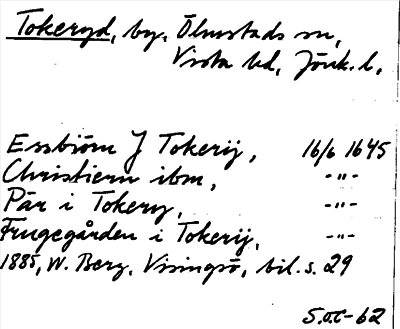 Tokeryd, by, Ölmstads sn,
Vista hd, Jönk. l.
Essbiörn J Tokerij, 16/6 1645
Christiern ibm, -"-
Pär i Tokery, -"-
Frugegården i Tokerij, -"-
1885, W. Berg, Visingsö, bil. s. 29
S.O.C-62